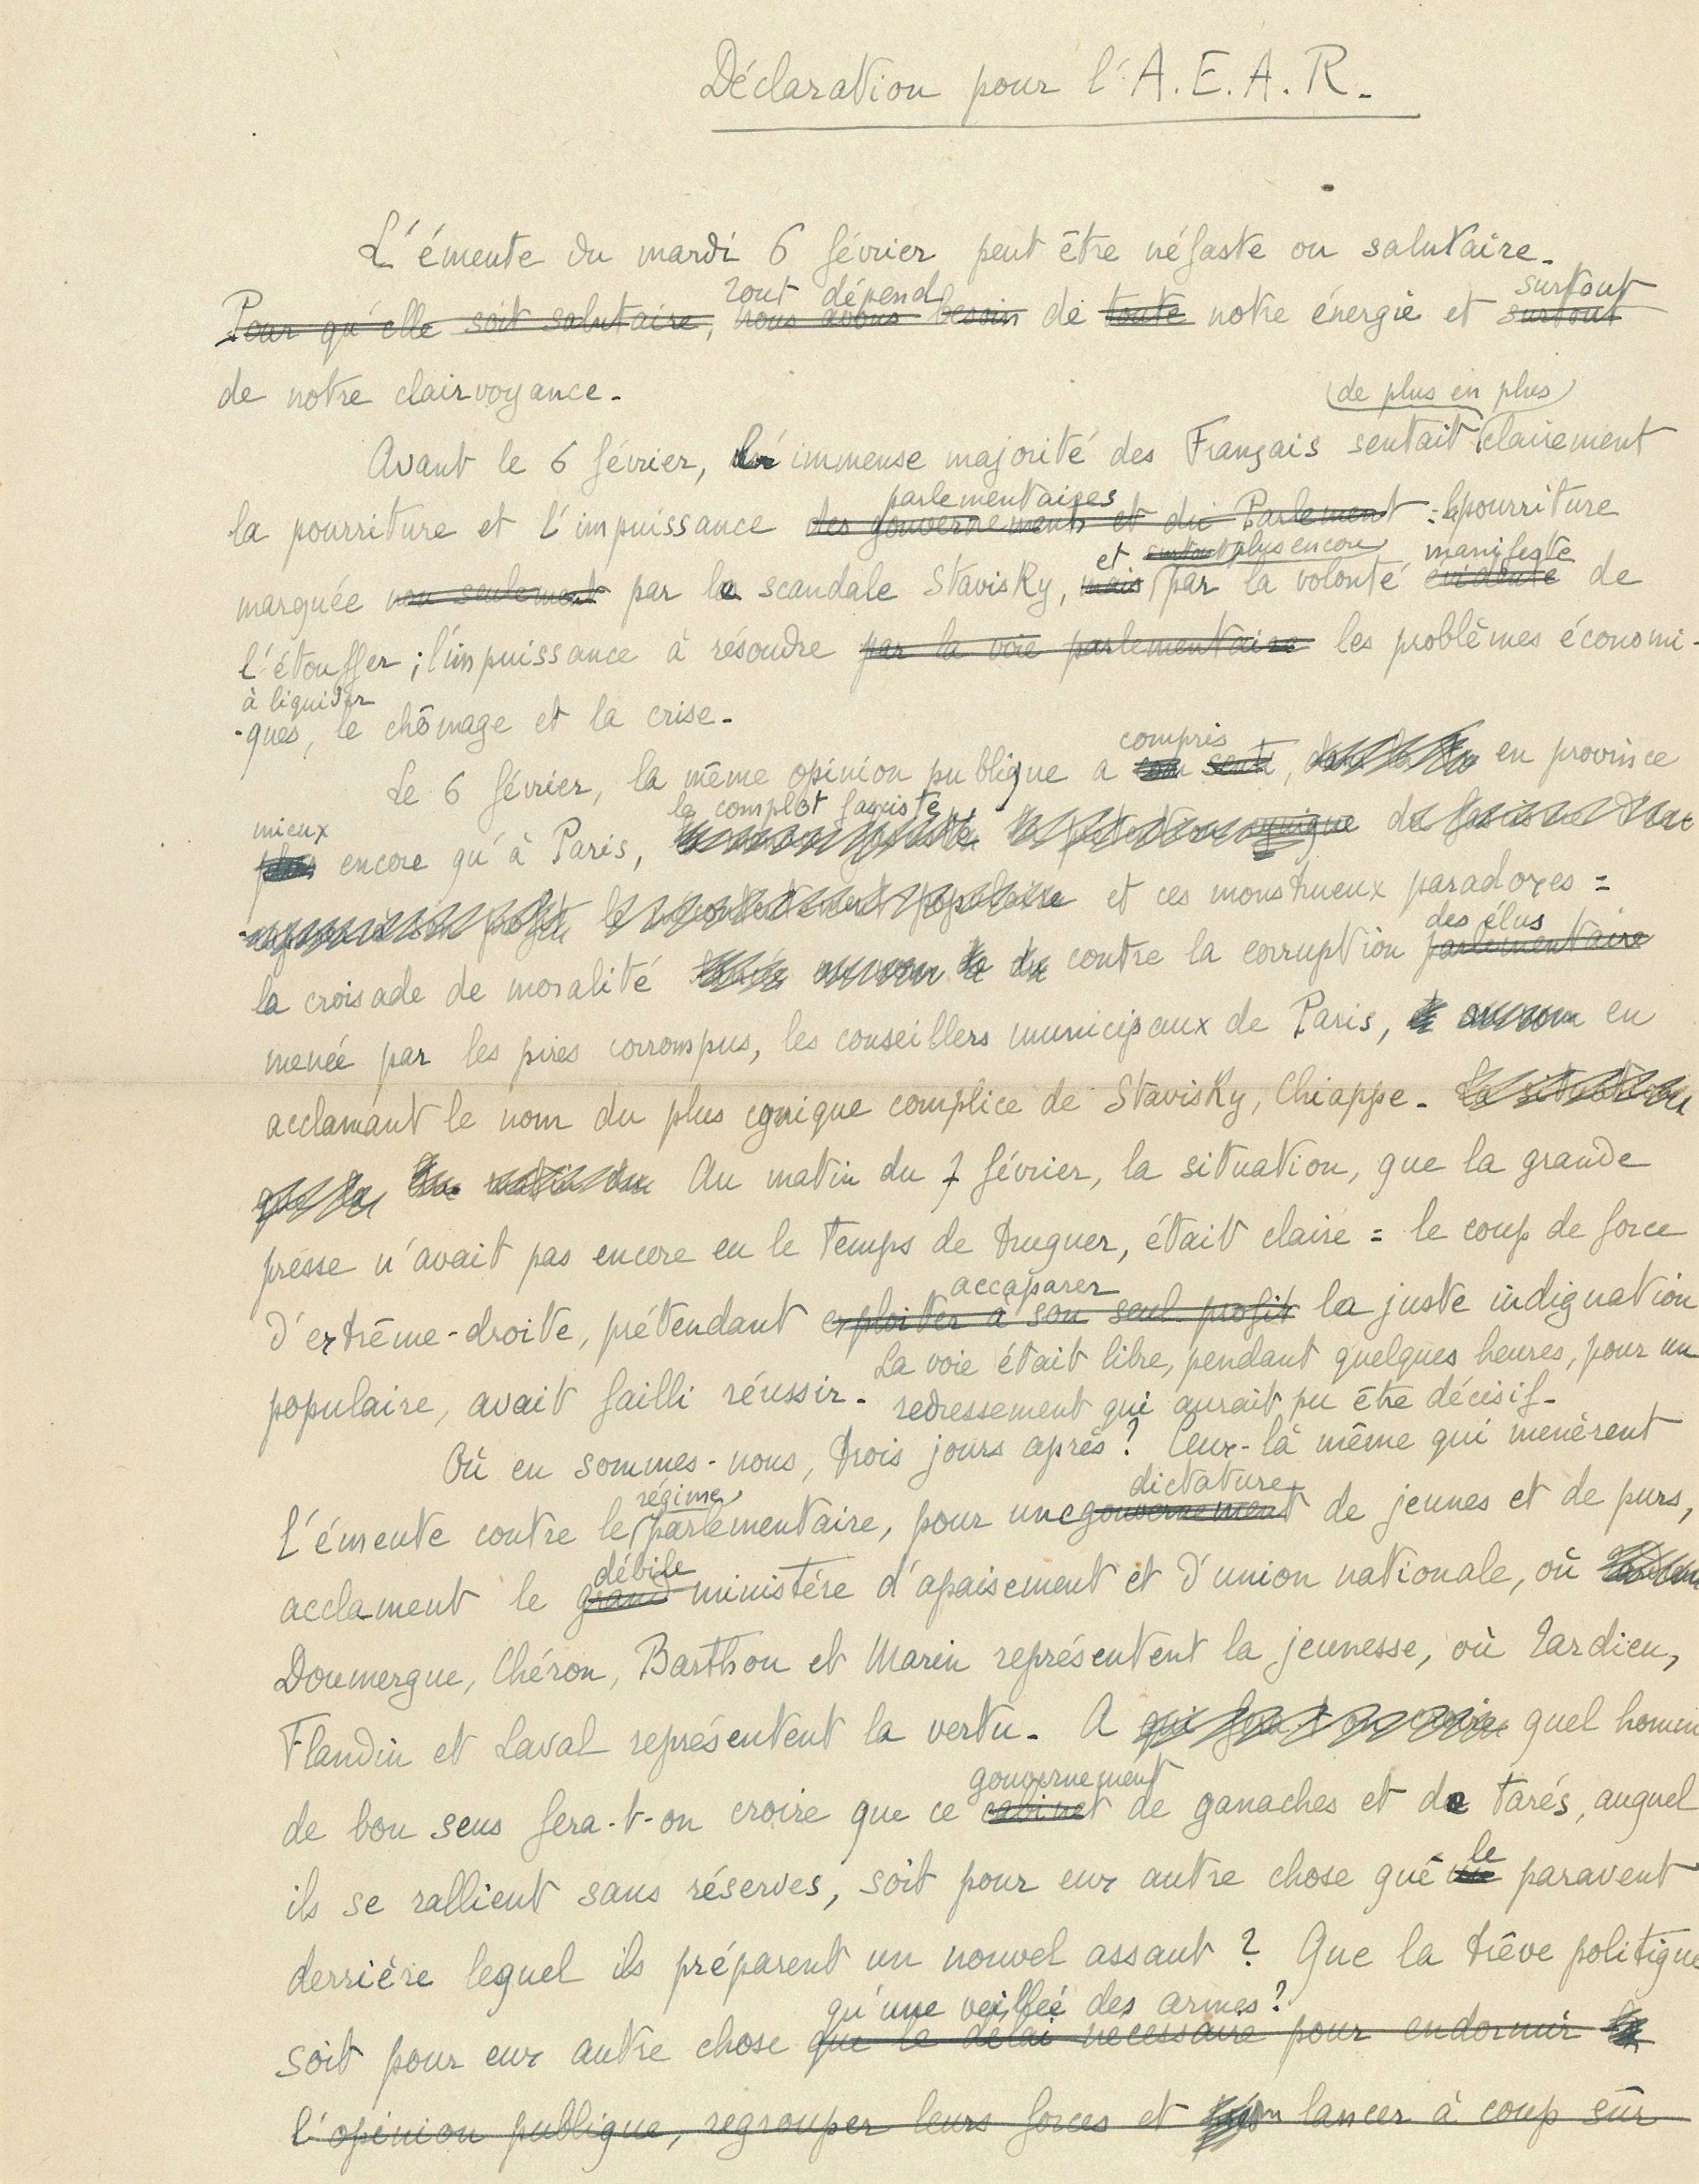 Déclaration pour l'A.E.A.R.
L'émeute du mardi 6 février peut être néfaste ou salutaire.
tout dépend surtout
Pour qu'elle soit salutaire, nous avons besoin de toute notre énergie et surtout
de notre clairvoyance.
de plus en plus
Avant le 6 février, l'immense majorité des Français sentait clairement
parlementaires
la pourriture et l'impuissance des gouvernements et du Parlement : la pourriture
et surtout plus encore manifeste
marquée non seulement par le scandale Stavisky, mais par la volonté évidente de
l'étouffer ; l'impuissance à résoudre par la voie parlementaire les problèmes économi-
à liquider
-ques, le chômage et la crise.
compris
Le 6 février, la même opinion publique a senti, en province
le complot fasciste
mieux
plus encore qu'à Paris, cynique
le mécontentement populaire et ces monstrueux paradoxes :
des élus
la croisade de moralité contre la corruption parlementaire
menée par les pires corrompus, les conseillers municipaux de Paris, au nom en
acclamant le nom du plus cynique complice de Stavisky, Chiappe. La situation
que la Au matin du 7 février, la situation, que la grande
presse n'avait pas encore eu le temps de truquer, était claire : le coup de force
accaparer
d'extrême-droite, prétendant exploiter à son seul profit la juste indignation
La voie était libre, pendant quelques heures, pour un
populaire, avait failli réussir. redressement qui aurait pu être décisif.
Où en sommes-nous, trois jours après ? Ceux-là même qui menèrent
régime dictature
l'émeute contre le parlementaire, pour une gouvernement de jeunes et de purs,
débile
acclament le grand ministère d'apaisement et d'union nationale, où
Doumergue, Chéron, Barthou et Marin représentent la jeunesse, où Tardieu,
Flandin et Laval représentent la vertu. A qui fera-t-on croire quel homme
gouvernement
de bon sens fera-t-on croire que ce cabinet de ganaches et de tarés, auquel
le
ils se rallient sans réserves, soit pour eux autre chose que un paravent
derrière lequel ils préparent un nouvel assaut ? Que la trêve politique
qu'une veillée des armes ?
soit pour eux autre chose que le délai nécessaire pour endormir
l'opinion publique, regrouper leurs forces et lancer à coup sûr